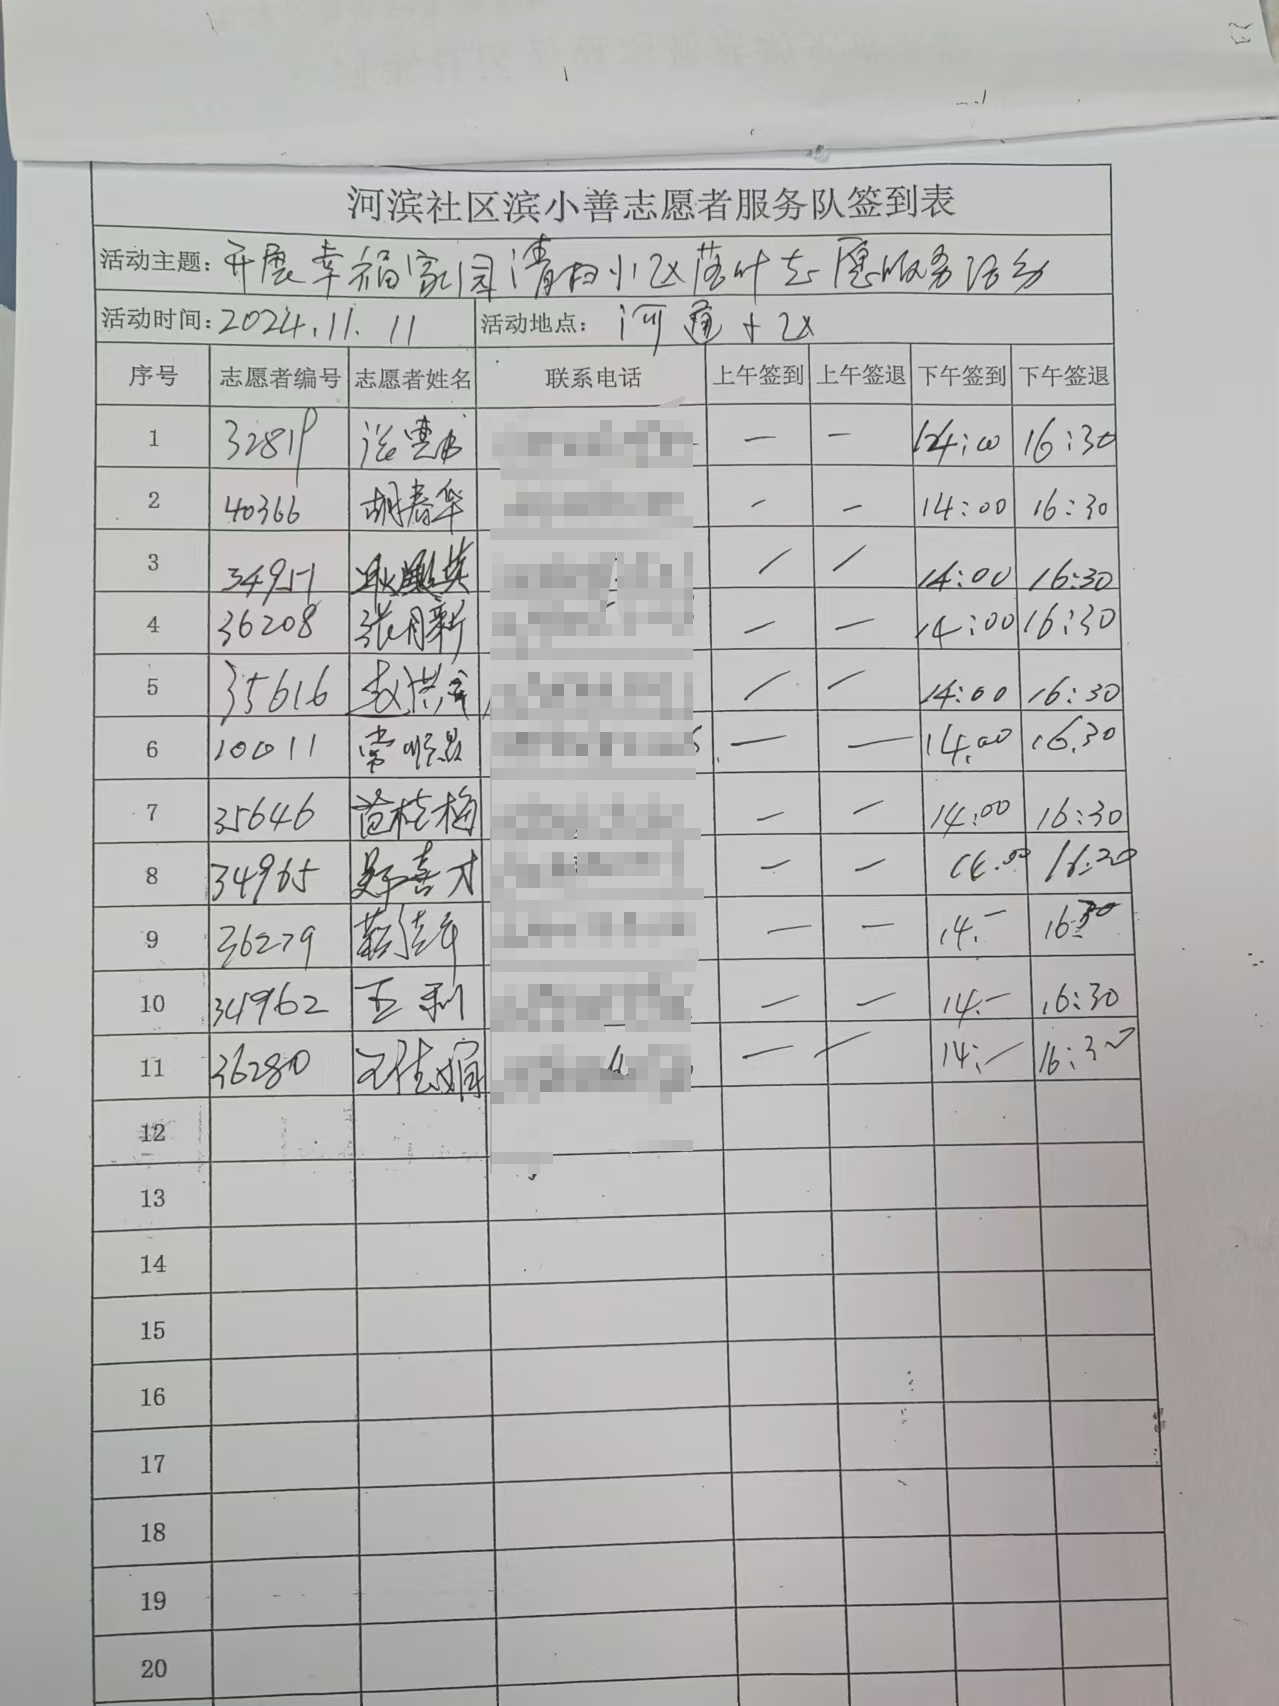 河滨社区滨小善志愿者服务队签到表
活动主题：开展幸福家园清扫小区落叶志愿服务活动
活动时间：2024.11.11 活动地点： 河道小区
序号 志愿者编号 志愿者姓名 联系电话 上午签到 上午签退 下午签到 下午签退
1 32819 — — 14:00 16:30
2 40366 胡春华 — — 14:00 16:30
3 34951 — — 14:00 16:30
4 36208 张月新 — — 14:00 16:30
5 35616 — — 14:00 16:30
6 10011 常顺昌 — — 14.00 16.30
7 35646 苗桂梅 — — 14:00 16:30
8 34965 — — 14:00 16:20
9 36279 — — 14.— 16:30
10 34962 王利 — — 14.— 16:30
11 36280 王佳娟 — — 14:— 16:30
12
13
14
15
16
17
18
19
20